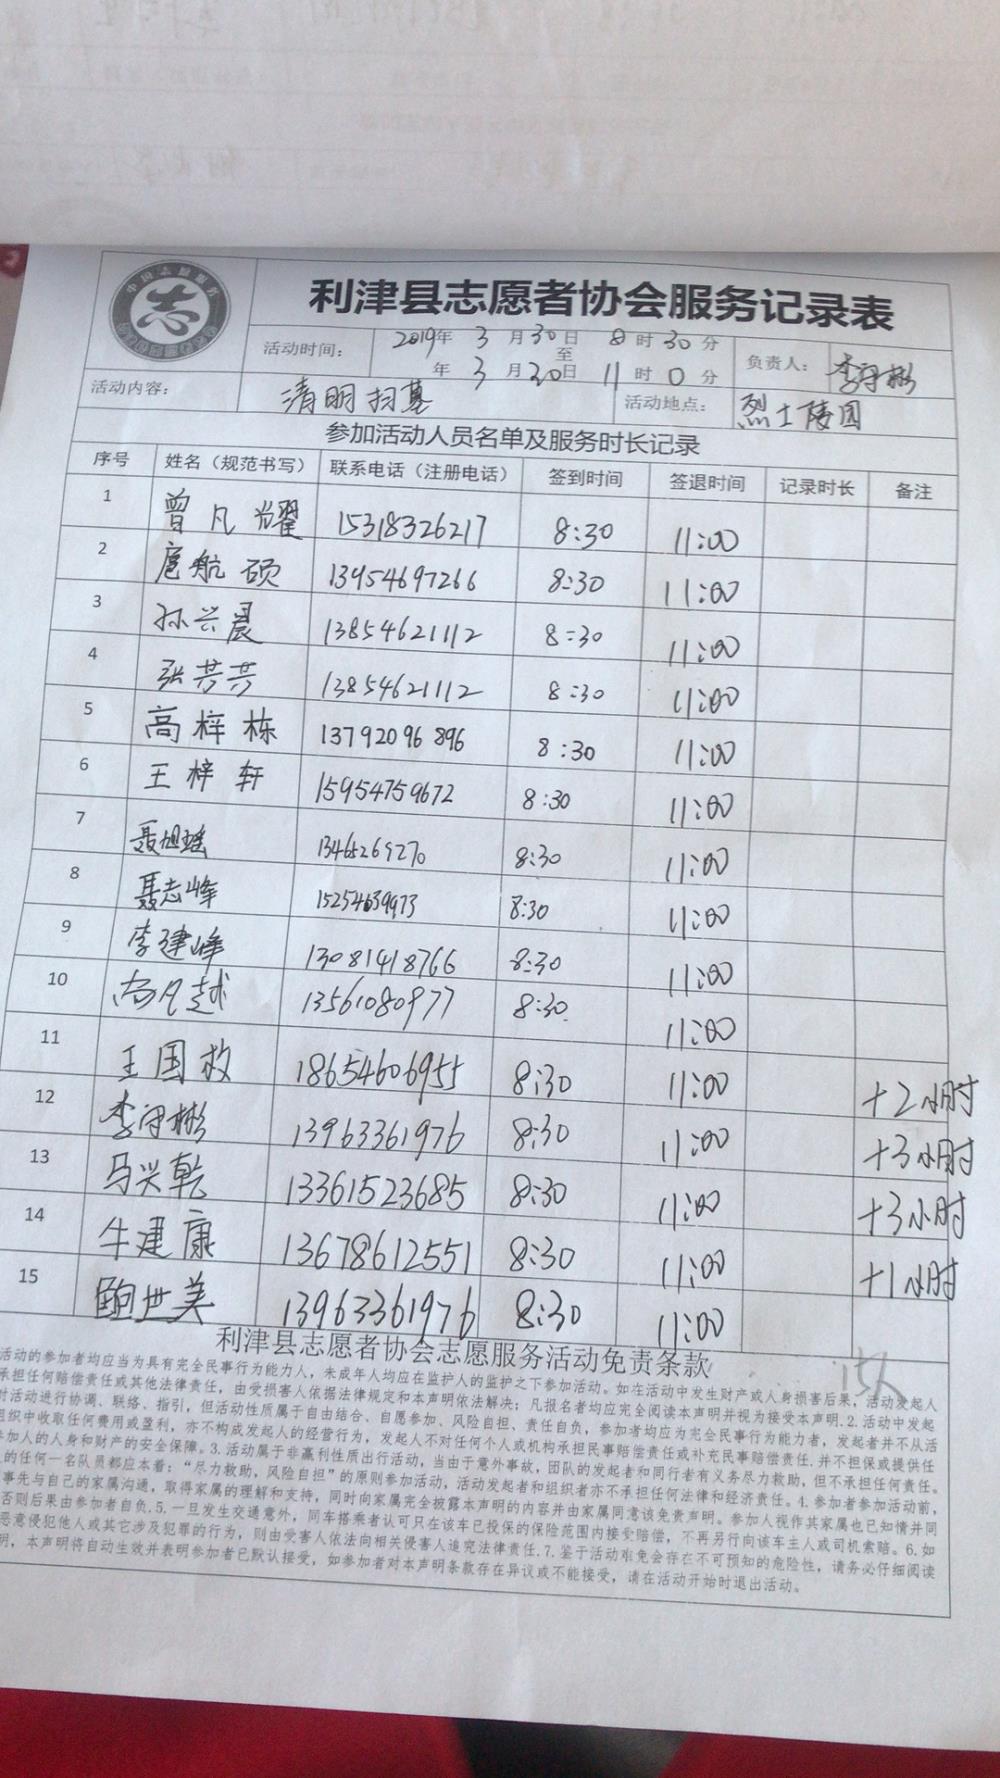 中国志愿服务
志
利津县志愿者协会服务记录表
活动时间: 2019年 3 月 30 日 8 时 30 分
至
年 3 月 30 日 11 时 0 分
负责人: 李守彬
活动内容: 清明扫墓 活动地点: 烈士陵园
参加活动人员名单及服务时长记录
序号 姓名（规范书写） 联系电话（注册电话） 签到时间 签退时间 记录时长 备注
1 曾凡耀 15318326217 8:30 11:00
2 扈航硕 13954697266 8:30 11:00
3 孙兴晨 13854621112 8:30 11:00
4 张芳芳 13854621112 8:30 11:00
5 高梓栋 13792096896 8:30 11:00
6 王梓轩 15954759672 8:30 11:00
7 聂旭瑶 13465269270 8:30 11:00
8 聂志峰 15254639973 8:30 11:00
9 李建峰 13081418766 8:30 11:00
10 尚凡越 13561080977 8:30 11:00
11 王国放 18654606955 8:30 11:00 +2小时
12 李守彬 13963361976 8:30 11:00 +3小时
13 马兴乾 13361523685 8:30 11:00 +3小时
14 牛建康 13678612551 8:30 11:00 +1小时
15 鲍世美 13963361976 8:30 11:00
利津县志愿者协会志愿服务活动免责条款
活动的参加者均应当为具有完全民事行为能力人，未成年人均应在监护人的监护之下参加活动。如在活动中发生财产或人身损害后果，活动发起人
承担任何赔偿责任或其他法律责任，由受损害人依据法律规定和本声明依法解决；凡报名者均应完全阅读本声明并视为接受本声明.2.活动中发起
对活动进行协调、联络、指引，但活动性质属于自由结合、自愿参加、风险自担、责任自负，参加者均应为完全民事行为能力者，发起者并不从活
组织中收取任何费用或盈利，亦不构成发起人的经营行为，发起人不对任何个人或机构承担民事赔偿责任或补充民事赔偿责任.并不担保或提供任
参加人的人身和财产的安全保障。3.活动属于非赢利性质出行活动，当由于意外事故，团队的发起者和同行者有义务尽力救助，但不承担任何责任。
的任何一名队员都应本着：“尽力救助，风险自担”的原则参加活动，活动发起者和组织者亦不承担任何法律和经济责任。4.参加者参加活动前，
事先与自己的家属沟通，取得家属的理解和支持，同时向家属完全披露本声明的内容并由家属同意该免责声明。参加人视作其家属也已知情并同
否则后果由参加者自负.5.一旦发生交通意外，同车搭乘者认可只在该车已投保的保险范围内接受赔偿，不再另行向该车主人或司机索赔。6.如
恶意侵犯他人或其它涉及犯罪的行为，则由受害人依法向相关侵害人追究法律责任.7.鉴于活动难免会存在不可预知的危险性，请务必仔细阅读
明，本声明将自动生效并表明参加者已默认接受，如参加者对本声明条款存在异议或不能接受，请在活动开始时退出活动。